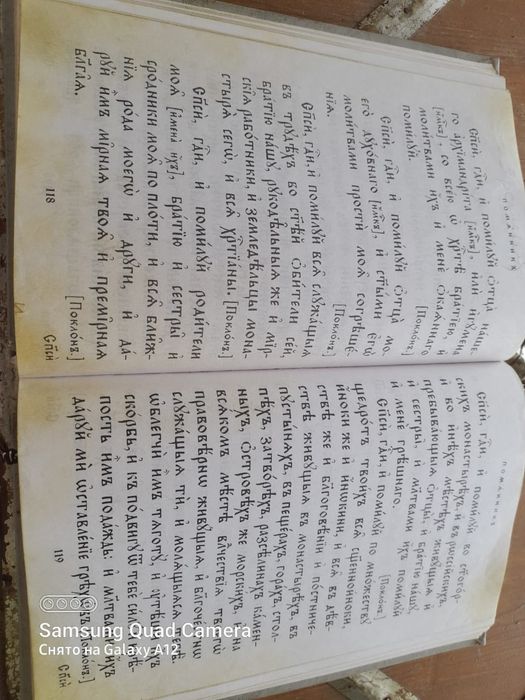 ПОМѦННИКЪ
Сп҃си́, гдⷭ҇и, и҆ поми́лꙋй ѻ҆тца̀ на́ше
го а҆рхїмандрі́та [и҆́мкъ], и҆лѝ и҆гꙋ́мена
[и҆́мкъ], со все́ю ѡ҆ хрⷭ҇тѣ̀ бра́тїею, и҆
моли́твами и҆́хъ и҆ менѐ ѻ҆кая́ннаго
поми́лꙋй. [Покло́нъ.]
Сп҃си́, гдⷭ҇и, и҆ поми́лꙋй ѻ҆тца̀ мо-
его̀ дꙋхо́внаго [и҆́мкъ], и҆ ст҃ы́ми є҆гѡ̀
моли́твами простѝ моѧ̑ согрѣше́-
нїѧ. [Покло́нъ.]
Сп҃си́, гдⷭ҇и, и҆ поми́лꙋй всѧ̑ слꙋжа́щыѧ
въ трꙋдѣ́хъ во ст҃ѣ́й ѻ҆би́тели се́й,
бра́тїю на́шꙋ, рꙋкодѣ́льныѧ же и҆ мїр-
скі̑ѧ рабо́тники, и҆ земледѣ́льцы мона-
стырѧ̀ сегѡ̀, и҆ всѧ̑ хрⷭ҇тїа́ны. [Покло́нъ.]
Сп҃си́, гдⷭ҇и, и҆ поми́лꙋй роди́тели
моѧ̑ [и҆менà и҆́хъ], бра́тїю и҆ сє́стры и҆
срѡ́дники моѧ̑ по пло́ти, и҆ всѧ̑ бли́ж-
нїѧ ро́да моегѡ̀ и҆ дрꙋ́ги, и҆ да́-
рꙋй и҆̀мъ ми̑рнаѧ твоѧ̑ и҆ преми̑рнаѧ
бл҃га̑ѧ. [Покло́нъ.]
Сп҃си́
118
ПОМѦННИКЪ
Сп҃си́, гдⷭ҇и, и҆ поми́лꙋй во ст҃ого́р-
скихъ монастырѣ́хъ, и҆ въ рѡссі́йскихъ
и҆ во и҆нѣ́хъ мѣ́стѣхъ живꙋ́щыѧ и҆
пребыва́ющыѧ ѻ҆тцы̀, и҆ бра́тїю на́шꙋ,
и҆ сє́стры, и҆ мл҃твами и҆́хъ поми́лꙋй
и҆ менѐ грѣ́шнаго. [Покло́нъ.]
Сп҃си́, гдⷭ҇и, и҆ поми́лꙋй по мно́жествꙋ
щедро́тъ твои́хъ всѧ̑ сщ҃енноинѡ́ки,
и҆нѡ́ки же и҆ и҆нѡ́кини, и҆ всѧ̑ въ дѣ́в-
ствѣ же и҆ бл҃гоговѣ́нїи и҆ по́стниче-
ствѣ живꙋ́щыѧ въ монастырѣ́хъ, въ
пꙋсты́нѧхъ, въ пеще́рахъ, гора́хъ, стол-
пѣ́хъ, затво́рѣхъ, разсѣ́линахъ ка́мен-
ныхъ, ѻ҆́стровѣхъ же морски́хъ, и҆ на
всѧ́комъ мѣ́стѣ влⷣчества твоегѡ̀
правовѣ́рнѡ живꙋ́щыѧ, и҆ бл҃гоче́стнѡ
слꙋжа́щыѧ тѝ, и҆ молѧ́щыѧсѧ тебѣ̀:
ѡ҆блегчѝ и҆̀мъ тѧготꙋ̀, и҆ ᲂу҆тѣ́ши и҆́хъ
ско́рбь, и҆ къ по́двигꙋ ѡ҆ тебѣ̀ си́лꙋ и҆ крѣ́-
пость и҆̀мъ пода́ждь: и҆ мл҃твами и҆́хъ
да́рꙋй мѝ ѡ҆ставле́нїе грѣхѡ́въ. [Покло́нъ.]
Сп҃си́
119
Samsung Quad Camera
Снято на Galaxy A12